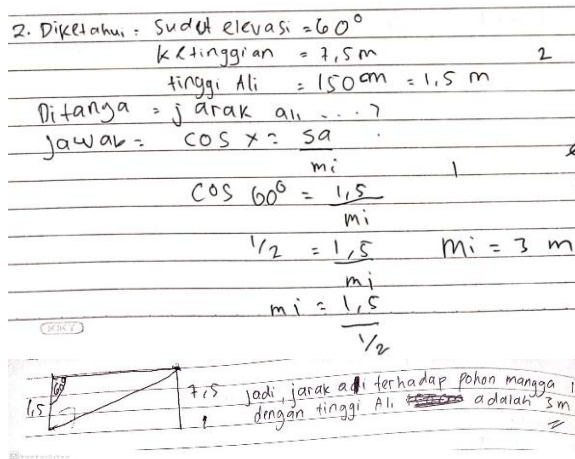 2. Diketahui : Sudut elevasi = 60°
ketinggian = 7,5 m
2
tinggi Ali = 150 cm = 1,5 m
Ditanya = jarak ali ... ?
Jawab = cos x = sa
mi
1
cos 60° = 1,5
mi
1/2 = 1,5 mi = 3 m
mi
mi = 1,5
1/2
KIKY
60
1,5
7,5
Jadi, jarak ali terhadap pohon mangga 1
dengan tinggi Ali adalah 3 m